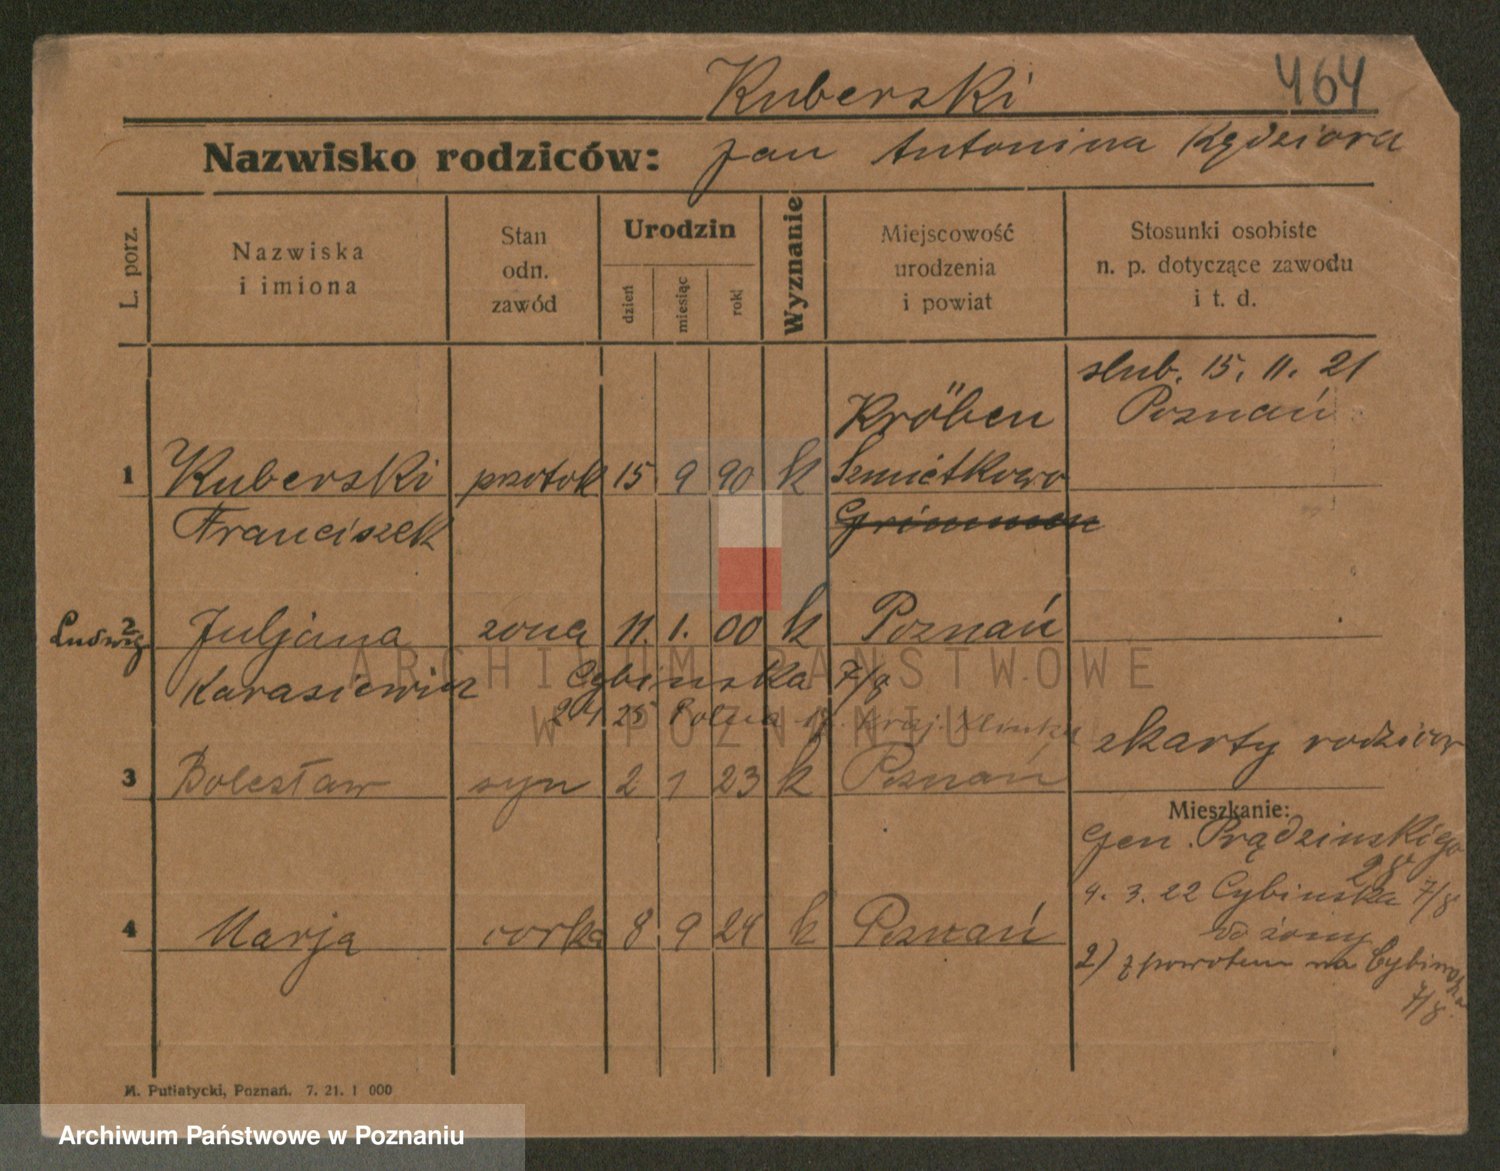 Kuberski 464
Nazwisko rodziców: Jan Antonina Kędziora
L. porz.
Nazwiska
i imiona
Stan
odn.
zawód
Urodzin
dzień
miesiąc
rok
Wyznanie
Miejscowość
urodzenia
i powiat
Stosunki osobiste
n. p. dotyczące zawodu
i t. d.
slub. 15. 11. 21
Kröben Poznań
1 Kuberski 15 9 90 k
Franciszek Grimmen
2 Juljana zona 11. 1. 00 k Poznań
Ludwig
Karasiewicz Cybinska 7/8
2 4 25 Polna
zkarty rodzicow
3 Bolesław syn 2 1 23 k Poznań
Mieszkanie:
Gen. Prądzinskiego
28
4. 3. 22 Cybinska 7/8
4 Marja corka 8 9 24 k Poznań
do żony
2) z powrotem na Cybinska
7/8.
M. Putiatycki, Poznań. 7. 21. 1 000
ARCHIWUM PAŃSTWOWE
W POZNANIU
Archiwum Państwowe w Poznaniu